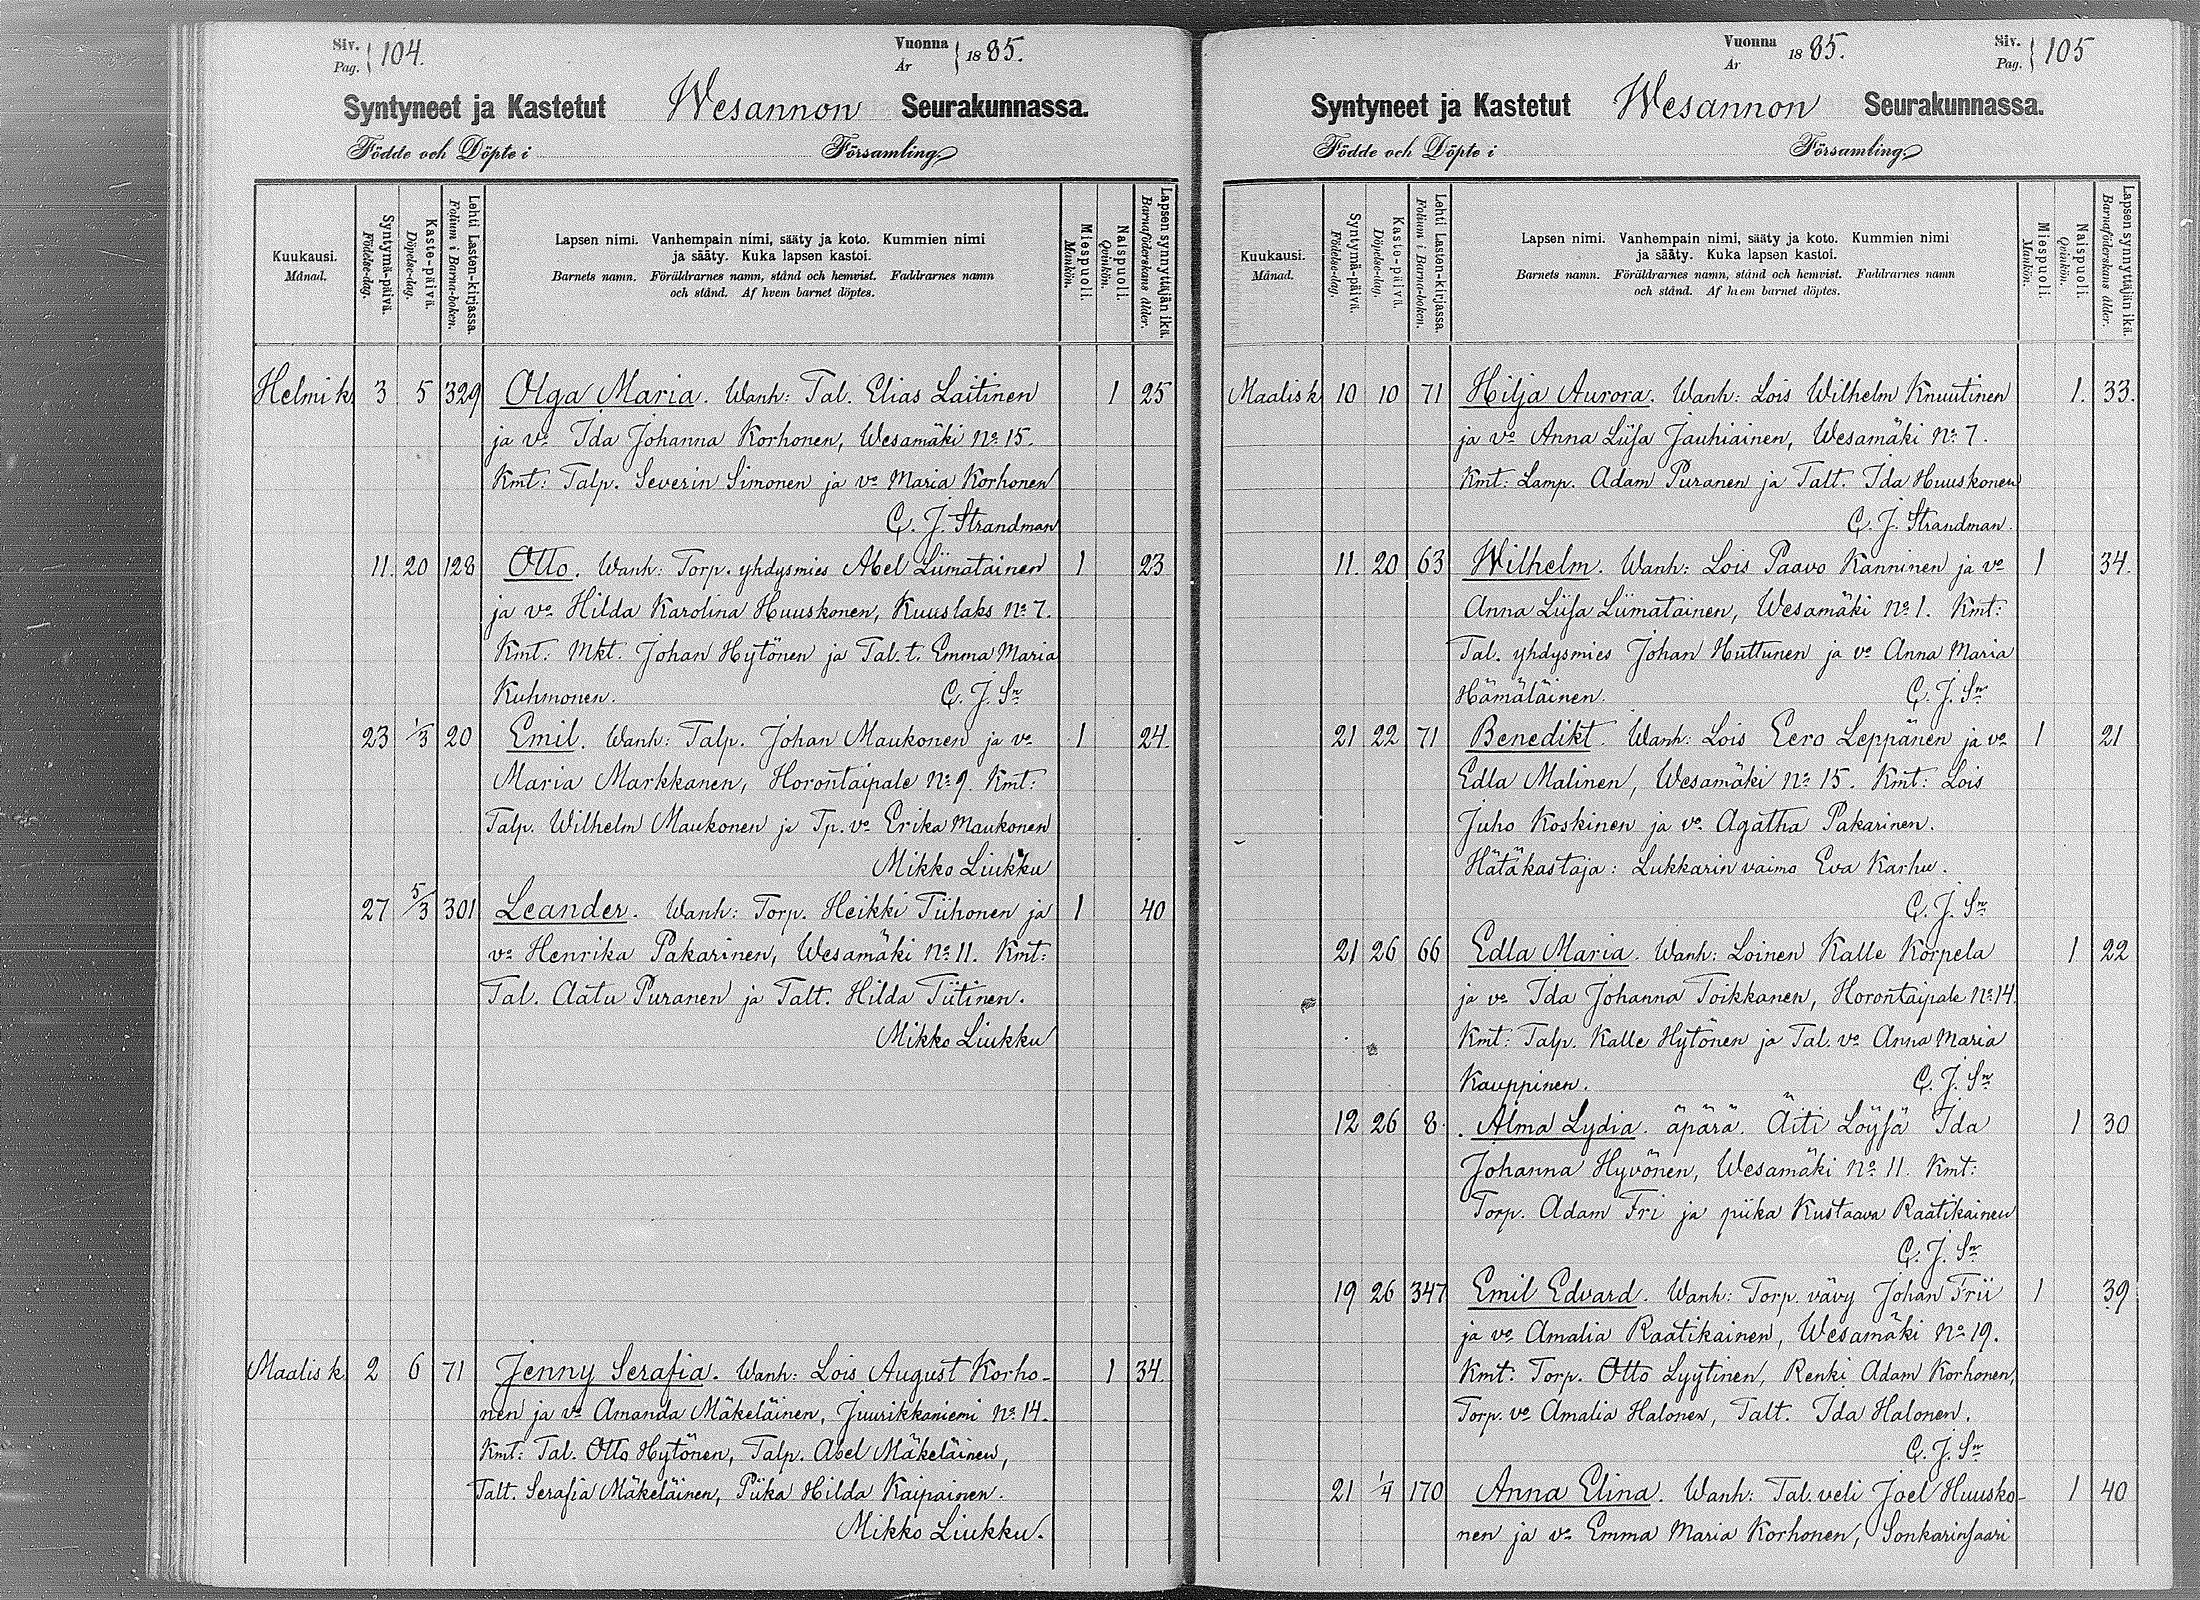 Siv. Pag. 104.
Vuonna År 1885.
Syntyneet ja Kastetut Wesannon Seurakunnassa.
Födde och Döpte i Församling.
Kuukausi. Månad.
Syntymä-päivä. Födelse-dag.
Kaste-päivä. Döpelse-dag.
Lehti Lasten-kirjassa. Folium i Barna-boken.
Lapsen nimi. Vanhempain nimi, sääty ja koto. Kummien nimi
ja sääty. Kuka lapsen kastoi.
Barnets namn. Föräldrarnes namn, stånd och hemvist. Faddrarnes namn
och stånd. Af hvem barnet döptes.
Miespuoli. Mankön.
Naispuoli. Qvinkön.
Lapsen synnyttäjän ikä. Barnaföderskans ålder.
Helmik. 3 5 329 Olga Maria. Wanh: Tal. Elias Laitinen 1 25
ja vo Ida Johanna Korhonen, Wesamäki No 15.
Kmt: Talp. Severin Simonen ja vo Maria Korhonen
C. J. Strandman
11. 20 128 Otto. Wanh: Torp. yhdysmies Abel Liimatainen 1 23
ja vo Hilda Karolina Huuskonen, Kuuslaks No 7.
Kmt: Mkt. Johan Hytönen ja Tal. t. Emma Maria
Kuhmonen. C. J. Sn
23 1/3 20 Emil. Wanh: Talp. Johan Maukonen ja vo 1 24.
Maria Markkanen, Horontaipale No 9. Kmt:
Talp. Wilhelm Maukonen ja Tp. vo Erika Maukonen
Mikko Liukku
27 5/3 301 Leander. Wanh: Torp. Heikki Tiihonen ja 1 40
vo Henrika Pakarinen, Wesamäki No 11. Kmt:
Tal. Aatu Puranen ja Talt. Hilda Tiitinen.
Mikko Liukku
Maalisk 2 6 71 Jenny Serafia. Wanh: Lois August Korho-
1 34.
nen ja vo Amanda Mäkeläinen, Juurikkaniemi No 14.
Kmt: Tal. Otto Hytönen, Talp. Abel Mäkeläinen,
Talt. Serafia Mäkeläinen, Piika Hilda Kaipainen.
Mikko Liukku.
Vuonna År 1885.
Siv. Pag. 105
Syntyneet ja Kastetut Wesannon Seurakunnassa.
Födde och Döpte i Församling.
Kuukausi. Månad.
Syntymä-päivä. Födelse-dag.
Kaste-päivä. Döpelse-dag.
Lehti Lasten-kirjassa. Folium i Barna-boken.
Lapsen nimi. Vanhempain nimi, sääty ja koto. Kummien nimi
ja sääty. Kuka lapsen kastoi.
Barnets namn. Föräldrarnes namn, stånd och hemvist. Faddrarnes namn
och stånd. Af hvem barnet döptes.
Miespuoli. Mankön.
Naispuoli. Qvinkön.
Lapsen synnyttäjän ikä. Barnaföderskans ålder.
Maalisk 10 10 71 Hilja Aurora. Wanh: Lois Wilhelm Knuutinen 1. 33.
ja vo Anna Liisa Jauhiainen, Wesamäki No 7.
Kmt: Lamp. Adam Puranen ja Talt. Ida Huuskonen
C. J. Strandman.
11. 20 63 Wilhelm. Wanh: Lois Paavo Kanninen ja vo 1 34.
Anna Liisa Liimatainen, Wesamäki No 1. Kmt:
Tal. yhdysmies Johan Huttunen ja vo Anna Maria
Hämäläinen. C. J. Sn
21 22 71 Benedikt. Wanh: Lois Eero Leppänen ja vo 1 21
Edla Malinen, Wesamäki No 15. Kmt: Lois
Juho Koskinen ja vo Agatha Pakarinen.
Hätäkastaja: Lukkarin vaimo Eva Karhu.
C. J. Sn
21 26 66 Edla Maria. Wanh: Loinen Kalle Korpela 1 22
ja vo Ida Johanna Toikkanen, Horontaipale No 14.
Kmt: Talp. Kalle Hytönen ja Tal. vo Anna Maria
Kauppinen. C. J. Sn
12 26 8. Alma Lydia. äpärä. Äiti Löysä Ida 1 30
Johanna Hyvönen, Wesamäki No 11. Kmt:
Torp. Adam Fri ja piika Kustaava Raatikainen
C. J. Sn
19 26 347 Emil Edvard. Wanh: Torp. vävy Johan Frii 1 39
ja vo Amalia Raatikainen, Wesamäki No 19.
Kmt: Torp. Otto Lyytinen, Renki Adam Korhonen,
Torp. vo Amalia Halonen, Talt. Ida Halonen.
C. J. Sn
21 1/4 170 Anna Elina. Wanh: Tal. veli Joel Huusko- 1 40
nen ja vo Emma Maria Korhonen, Sonkarinsaari